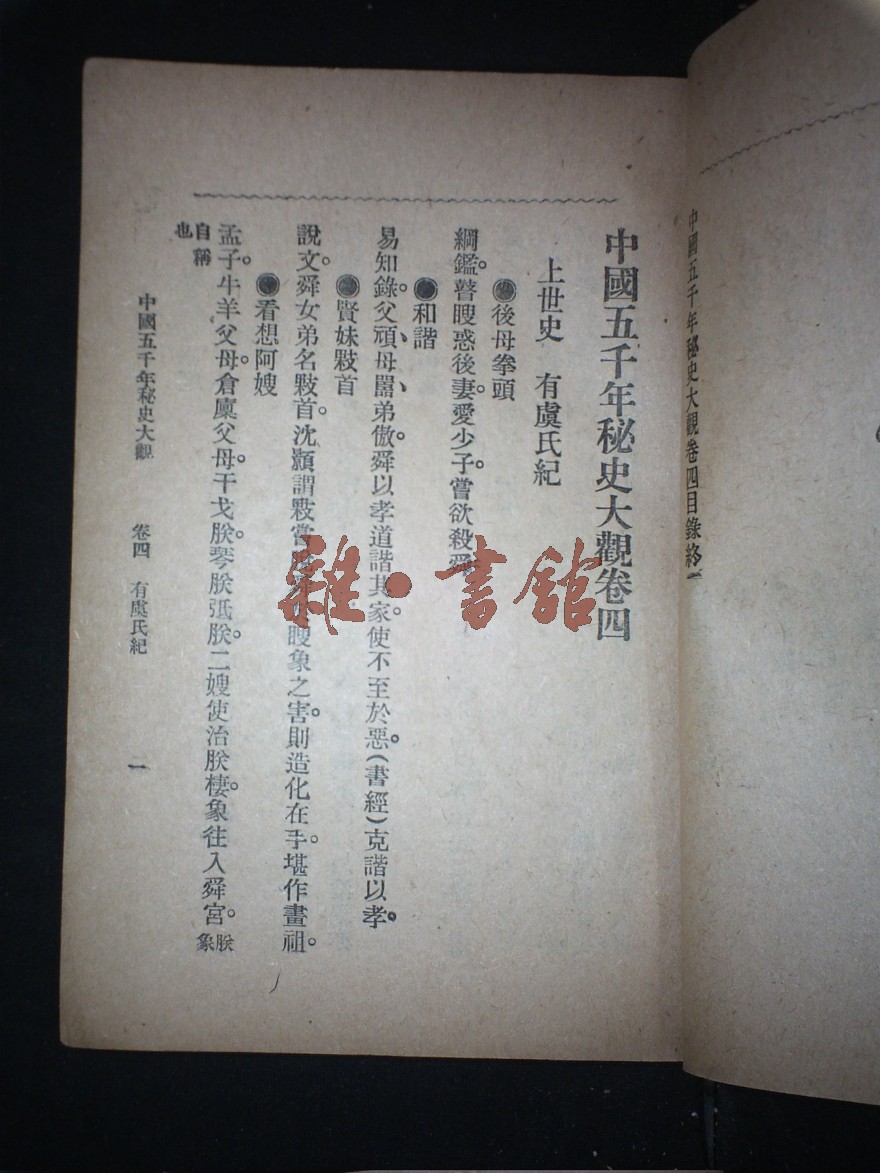 中國五千年秘史大觀卷四目錄終
中國五千年秘史大觀卷四
上世史 有虞氏紀
●後母拳頭
綱鑑。瞽瞍惑後妻。愛少子。嘗欲殺舜
●和諧
易知錄。父頑、母嚚、弟傲。舜以孝道諧其家。使不至於惡。(書經)克諧以孝。
●賢妹敤首
說文。舜女弟名敤首。沈顥謂敤嘗瞍象之害。則造化在手。堪作畫祖。
●看想阿嫂
孟子。牛羊父母。倉廩父母。干戈朕。琴朕。弤朕。二嫂使治朕棲。象往入舜宮。朕象
自稱也
中國五千年秘史大觀 卷四 有虞氏紀 一
雜·書館